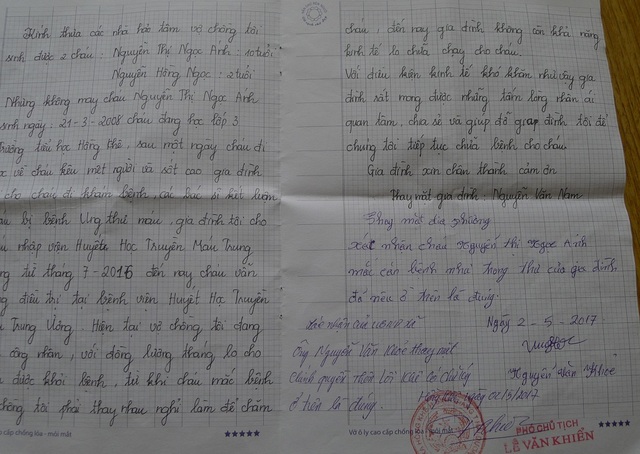 Kính thưa các nhà hảo tâm vợ chồng tôi
sinh được 2 cháu: Nguyễn Thị Ngọc Anh: 10 tuổi
Nguyễn Hồng Ngọc: 2 tuổi
Nhưng không may cháu Nguyễn Thị Ngọc Anh
sinh ngày: 21-3-2008 cháu đang học lớp 3
trường tiểu học Hồng khê, sau một ngày cháu đi
học về cháu kêu mệt người và sốt cao gia đình
cho cháu đi khám bệnh, các bác sĩ kết luận
bị bệnh Ung thư máu, gia đình tôi cho
nhập viện Huyết Học Truyền Máu Trung
từ tháng 7-2016 đến nay cháu vẫn
điều trị tại bệnh viện Huyết Học Truyền
Trung Ương. Hiện tại vợ chồng tôi đang
công nhân, với đồng lương tháng lo cho
được khỏi bệnh, từ khi cháu mắc bệnh
chồng tôi phải thay nhau nghỉ làm để chăm
cấp chống lóa - mỏi mắt
cháu, đến nay gia đình không còn khả năng
kinh tế lo chữa chạy cho cháu.
Với điều kiện kinh tế khó khăn như vậy gia
đình rất mong được những tấm lòng nhân ái
quan tâm, chia sẻ và giúp đỡ gia đình tôi để
chúng tôi tiếp tục chữa bệnh cho cháu
Gia đình xin chân thành cảm ơn
Thay mặt gia đình: Nguyễn Văn Nam
Thay mặt địa phương
Xác nhận cháu Nguyễn Thị Ngọc Anh
mắc căn bệnh như trong thư của gia đình
đã nêu ở trên là đúng.
Ngày 2-5-2017
Nguyễn Văn Khoẻ
Xác nhận của UBND xã
Ông Nguyễn Văn Khoẻ thay mặt
chính quyền Thôn Lôi Khê có chữ ký
ở trên là đúng.
ngày 02/5/2017
PHÓ CHỦ TỊCH
LÊ VĂN KHIỂN
Vở ô ly cao cấp chống lóa - mỏi mắt